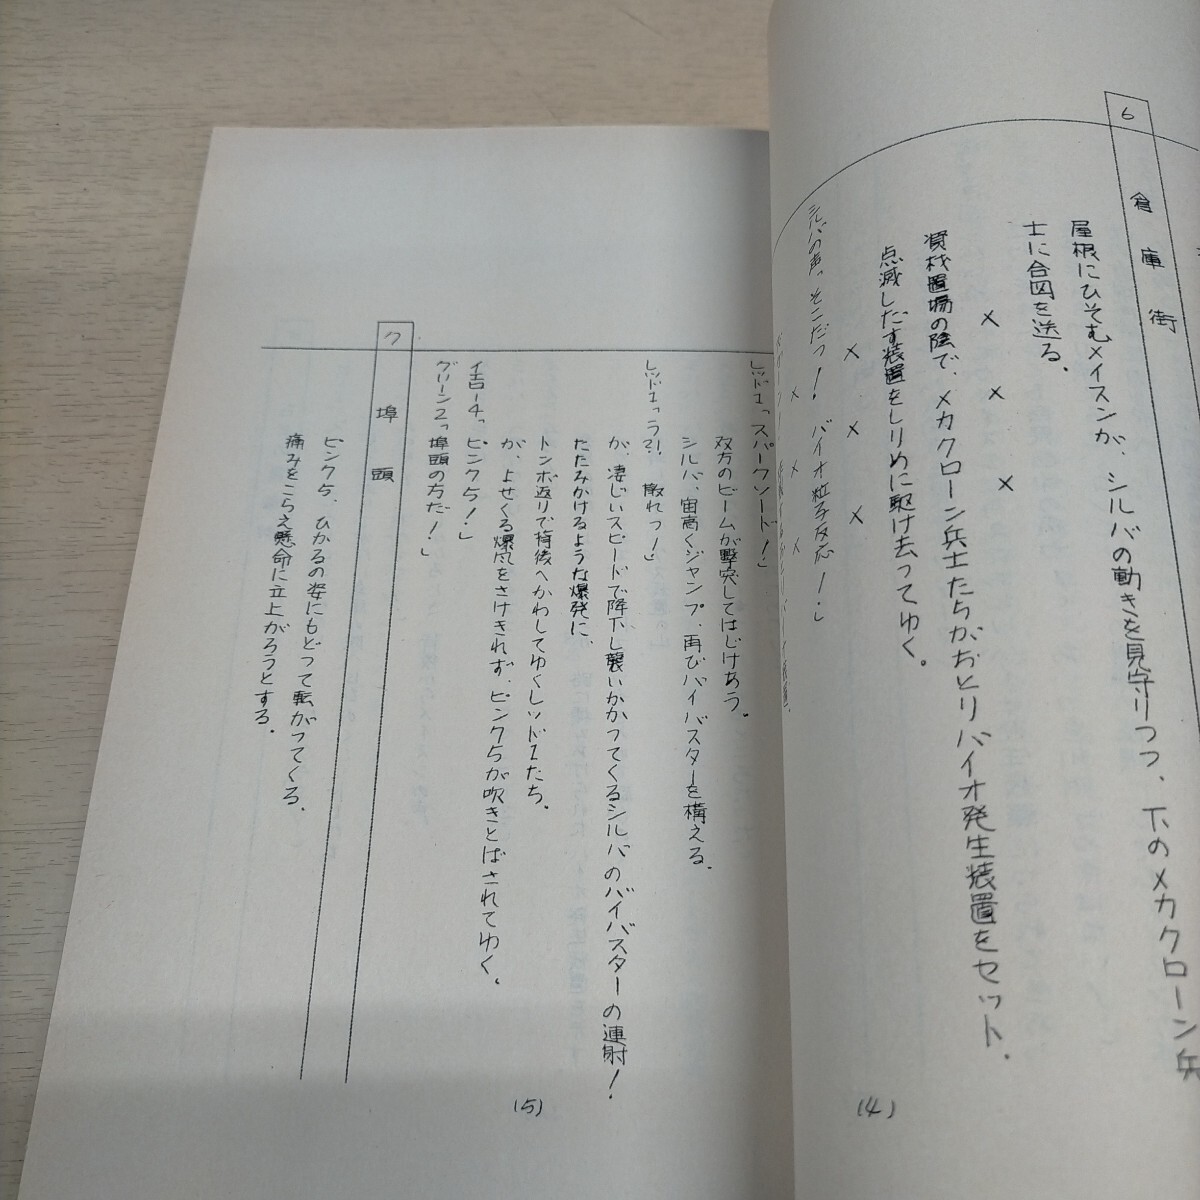 6
倉庫街
屋根にひそむメイスンが、シルバの動きを見守りつつ、下のメカクローン兵
士に合図を送る。
× × ×
資材置場の陰で、メカクローン兵士たちがおとりバイオ発生装置をセット、
点滅しだす装置をしりめに駆け去ってゆく。
× × ×
シルバの声「そこだっ! バイオ粒子反応!」
(4)
レッド1「スパークソード!」
双方のビームが撃突してはじけあう。
シルバ、宙高くジャンプ、再びバイバスターを構える。
レッド1「うっ?! 散れっ!」
が、凄じいスピードで降下し襲いかかってくるシルバのバイバスターの連射!
たたみかけるような爆発に、
トンボ返りで背後へかわしてゆくレッド1たち。
が、よせくる爆風をさけきれず、ピンク5が吹きとばされてゆく。
イエロー4「ピンク5!」
グリーン2「埠頭の方だ!」
7
埠頭
ピンク5、ひかるの姿にもどって転がってくる。
痛みをこらえ懸命に立上がろうとする。
(5)